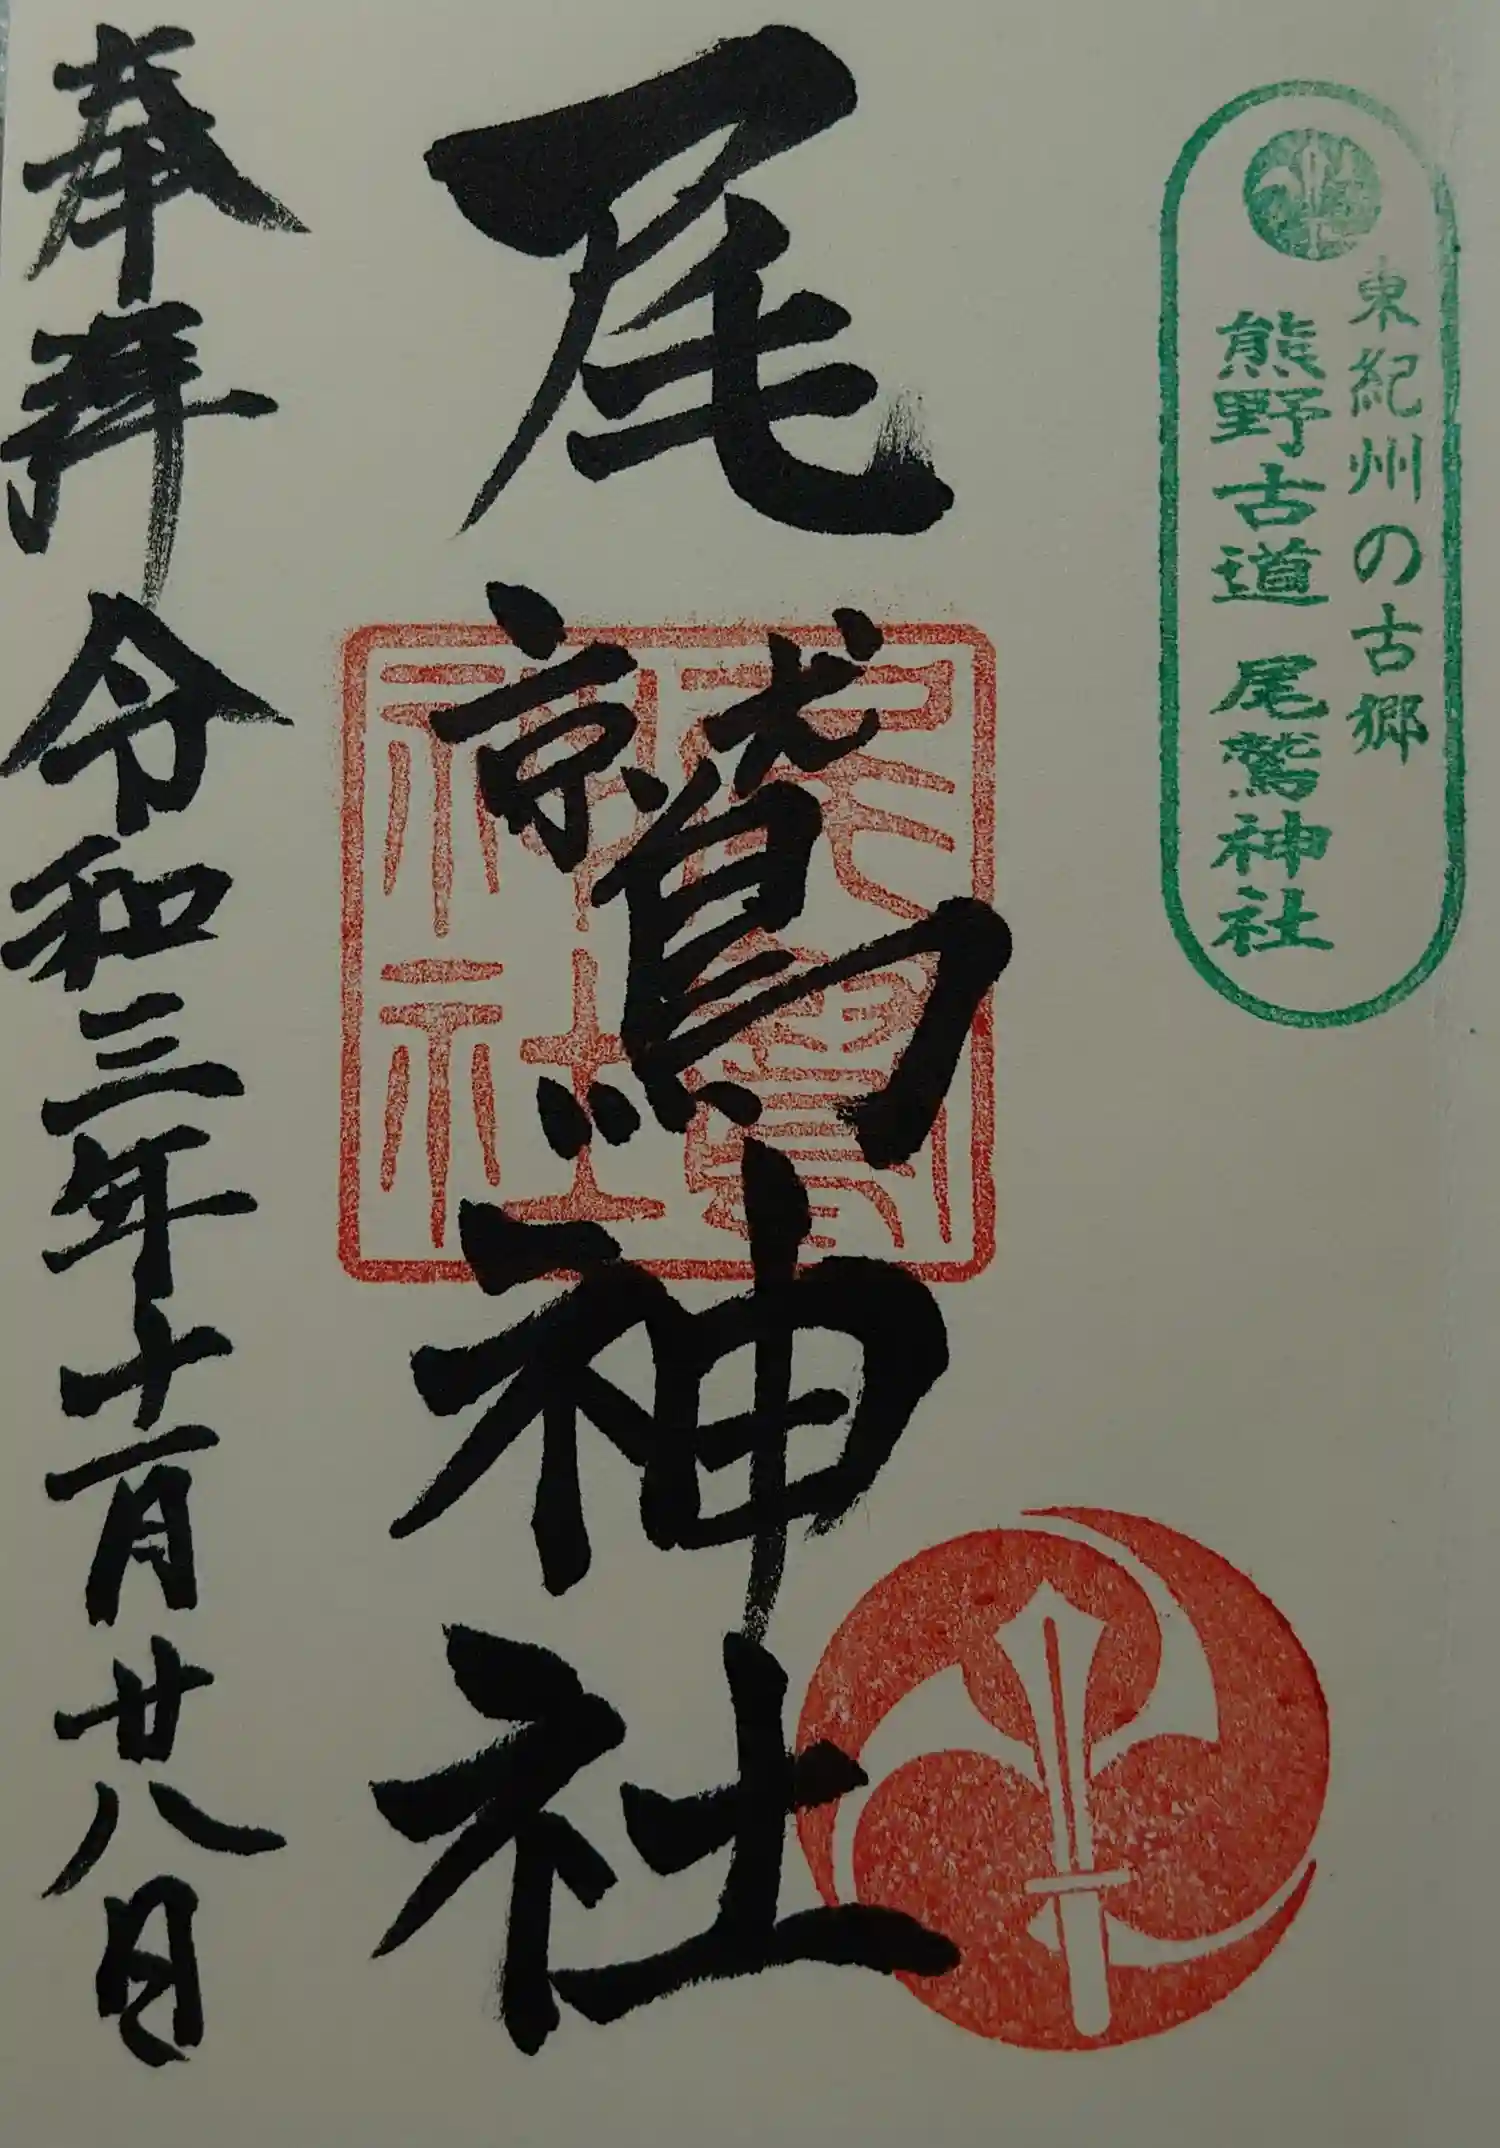 東紀州の古郷
熊野古道 尾鷲神社
尾鷲神社
尾鷲神社
奉拜 令和三年十一月廿八日